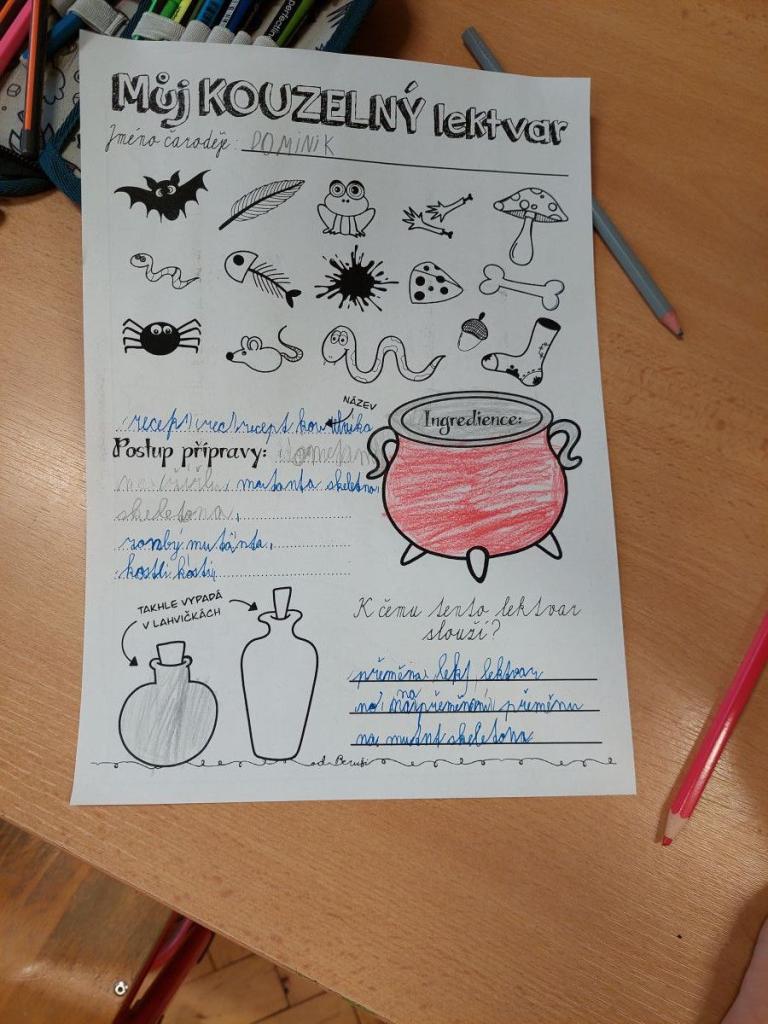 Můj KOUZELNÝ lektvar
Jméno čaroděje: DOMINIK
NÁZEV
recept recept
Ingredience:
Postup přípravy:
mutanta skeletna,
skeletona,
zonby mutanta,
kostli kosti,
TAKHLE VYPADÁ
V LAHVIČKÁCH
K čemu tento lektvar
slouží?
přeměna lekt lektvar
na
na přeměnu
na mutnt skeletona
od Berušk